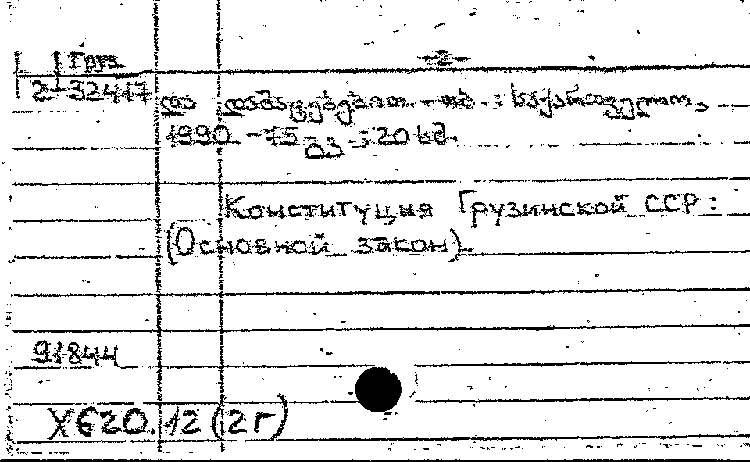 Груз
2-32447
-2-
და დამატებებით. - თბ. : საქართველო,
1990. - 75 გვ. ; 20 სმ.
Конституция Грузинской ССР :
(Основной закон).
91844
X620.12(2Г)